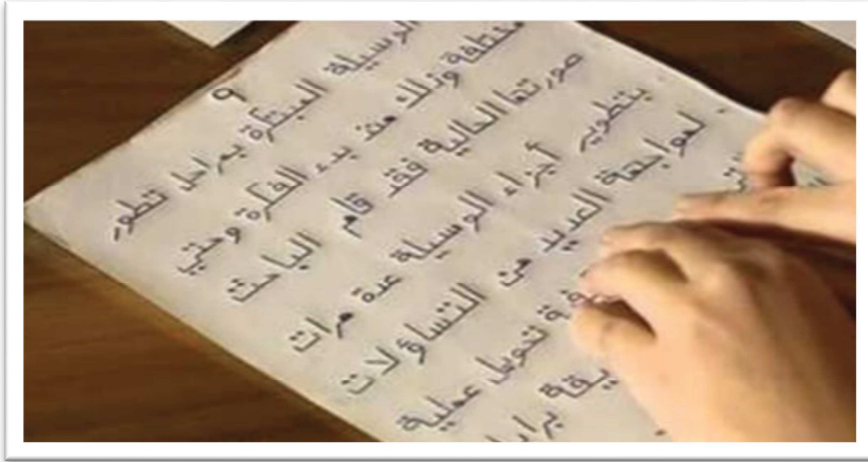 ٩
الوسيلة المبتكرة بمراحل تطور
مختلفة وذلك منذ بدء الفكرة وحتي
صورتها الحالية فقد قام الباحث
بتطوير أجزاء الوسيلة عدة مرات
لمواجهة العديد من التساؤلات
تحويل عملية